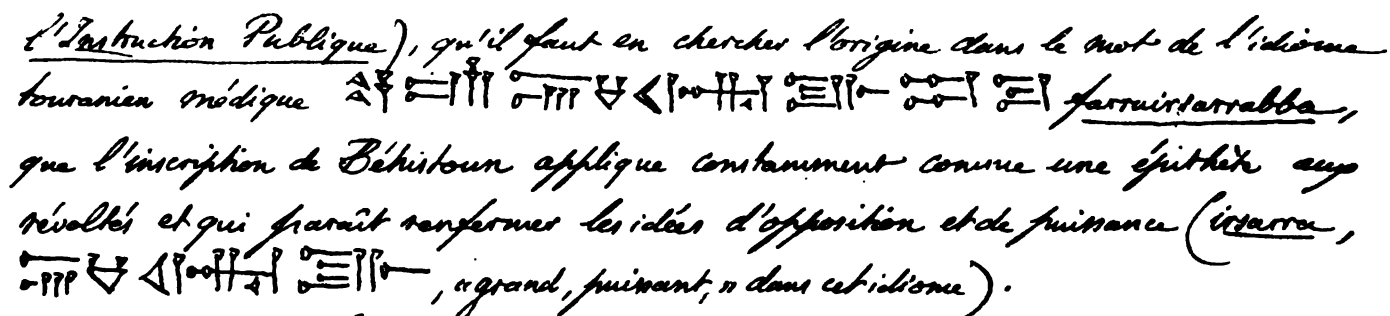 l'Instruction Publique), qu'il faut en chercher l'origine dans le mot de l'idiome
touranien médique farruirsarrabba,
que l'inscription de Béhistoun applique constamment comme une épithète aux
révoltés et qui paraît renfermer les idées d'opposition et de puissance (irsarra,
, « grand, puissant, » dans cet idiome).